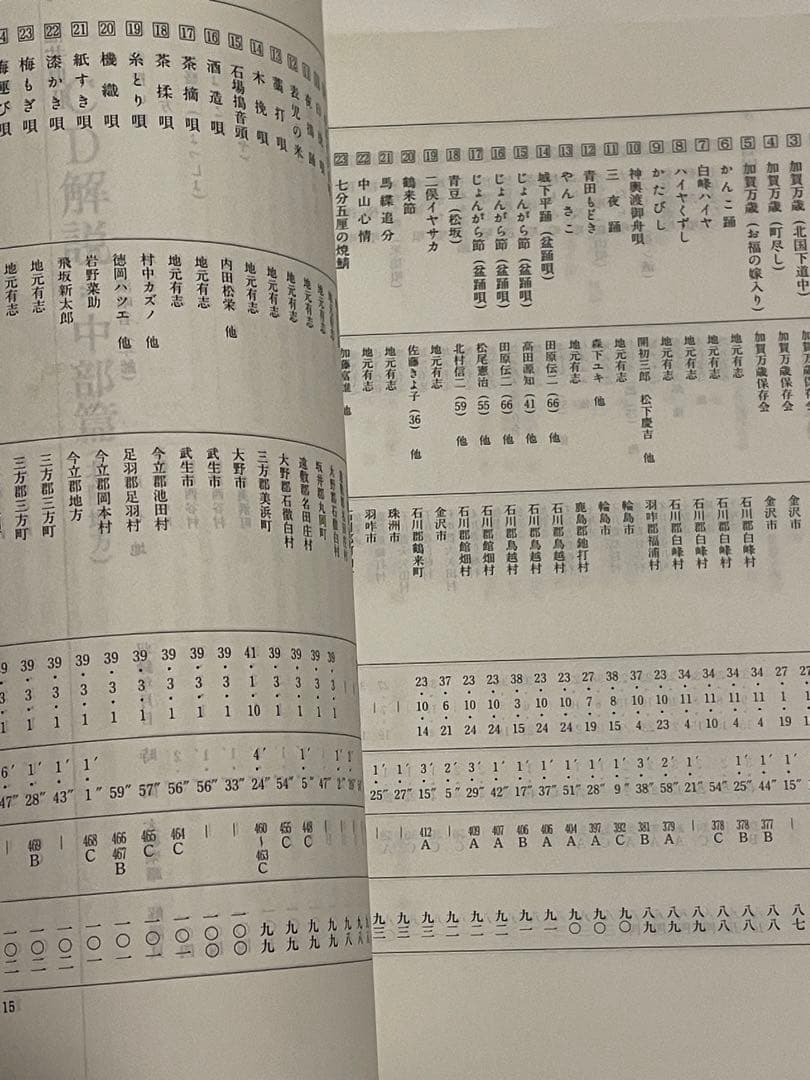 3 加賀万歳（北国下道中）
4 加賀万歳（町尽し）
5 加賀万歳（お福の嫁入り）
6 かんこ踊
7 白峰ハイヤ
8 ハイヤくずし
9 かたびし
10 神輿渡御舟唄
11 三夜踊
12 青田もどき
13 やんさこ
14 城下平踊（盆踊唄）
15 じょんがら節（盆踊唄）
16 じょんがら節（盆踊唄）
17 じょんがら節（盆踊唄）
18 青豆（松坂）
19 二俣イヤサカ
20 鶴来節
21 馬緤追分
22 中山心情
23 七分五厘の焼鯖
加賀万歳保存会
加賀万歳保存会
地元有志
地元有志
地元有志
地元有志
開初三郎 松下慶吉 他
地元有志
森下ユキ 他
地元有志
田原伝二（66）他
高田源知（41）他
田原伝二（66）他
松尾憲治（55）他
北村信二（59）他
地元有志
佐藤きよ子（36）他
地元有志
地元有志
加藤富雄 他
金沢市
金沢市
石川郡白峰村
石川郡白峰村
石川郡白峰村
石川郡白峰村
羽咋郡福浦村
輪島市
輪島市
鹿島郡鉇打村
石川郡鳥越村
石川郡鳥越村
石川郡鳥越村
石川郡館畑村
石川郡館畑村
金沢市
石川郡鶴来町
珠洲市
羽咋市
27・1・19
34・11・4
34・11・10
34・11・4
34・11・4
23・10・23
37・10・4
38・8・15
27・7・19
23・10・10
23・10・24
38・3・15
23・10・24
23・10・24
37・6・21
23・10・14
｜
｜
1′・15″
1′・44″
1′・25″
54″
1′・21″
2′・58″
3′・38″
1′・9″
1′・28″
1′・51″
1′・37″
1′・17″
1′・42″
3′・29″
2′・5″
3′・15″
1′・27″
1′・25″
｜
377 B
378 B
378 C
｜
379 A
381 B
392 C
397 A
404 A
406 A
406 B
407 A
409 A
｜
412 A
｜
｜
八七
八八
八八
八八
八八
八九
八九
九〇
九〇
九〇
九一
九一
九二
九二
九二
九三
九三
九三
12 表児の米
13 藁打唄
14 木挽唄
15 石場搗音頭
16 酒造唄
17 茶摘唄
18 茶揉唄
19 糸とり唄
20 機織唄
21 紙すき唄
22 漆かき唄
23 梅もぎ唄
梅運び唄
地元有志
地元有志
地元有志
地元有志
地元有志
内田松栄 他
地元有志
地元有志
村中カズノ 他
徳岡ハツエ 他
岩野菜助
飛坂新太郎
地元有志
地元有志
大野郡石徹白村
坂井郡丸岡町
遠敷郡名田庄村
大野郡石徹白村
三方郡美浜町
大野市
武生市
武生市
今立郡池田村
足羽郡足羽村
今立郡岡本村
今立郡地方
三方郡三方町
三方郡三方町
39・3・1
39・3・1
39・3・1
39・3・1
41・1・10
39・3・1
39・3・1
39・3・1
39・3・1
39・3・1
39・3・1
39・3・1
39・3・1
1′・2″
47″
1′・5″
54″
4′・24″
33″
56″
56″
57″
59″
1′・1″
1′・43″
1′・28″
6′・47″
448 C
455 C
460～463 C
｜
｜
464 C
465 C
466 467 B
468 C
｜
469 B
｜
九八
九九
九九
九九
九九
一〇〇
一〇〇
一〇一
一〇一
一〇一
一〇一
一〇二
一〇二
一〇二
15